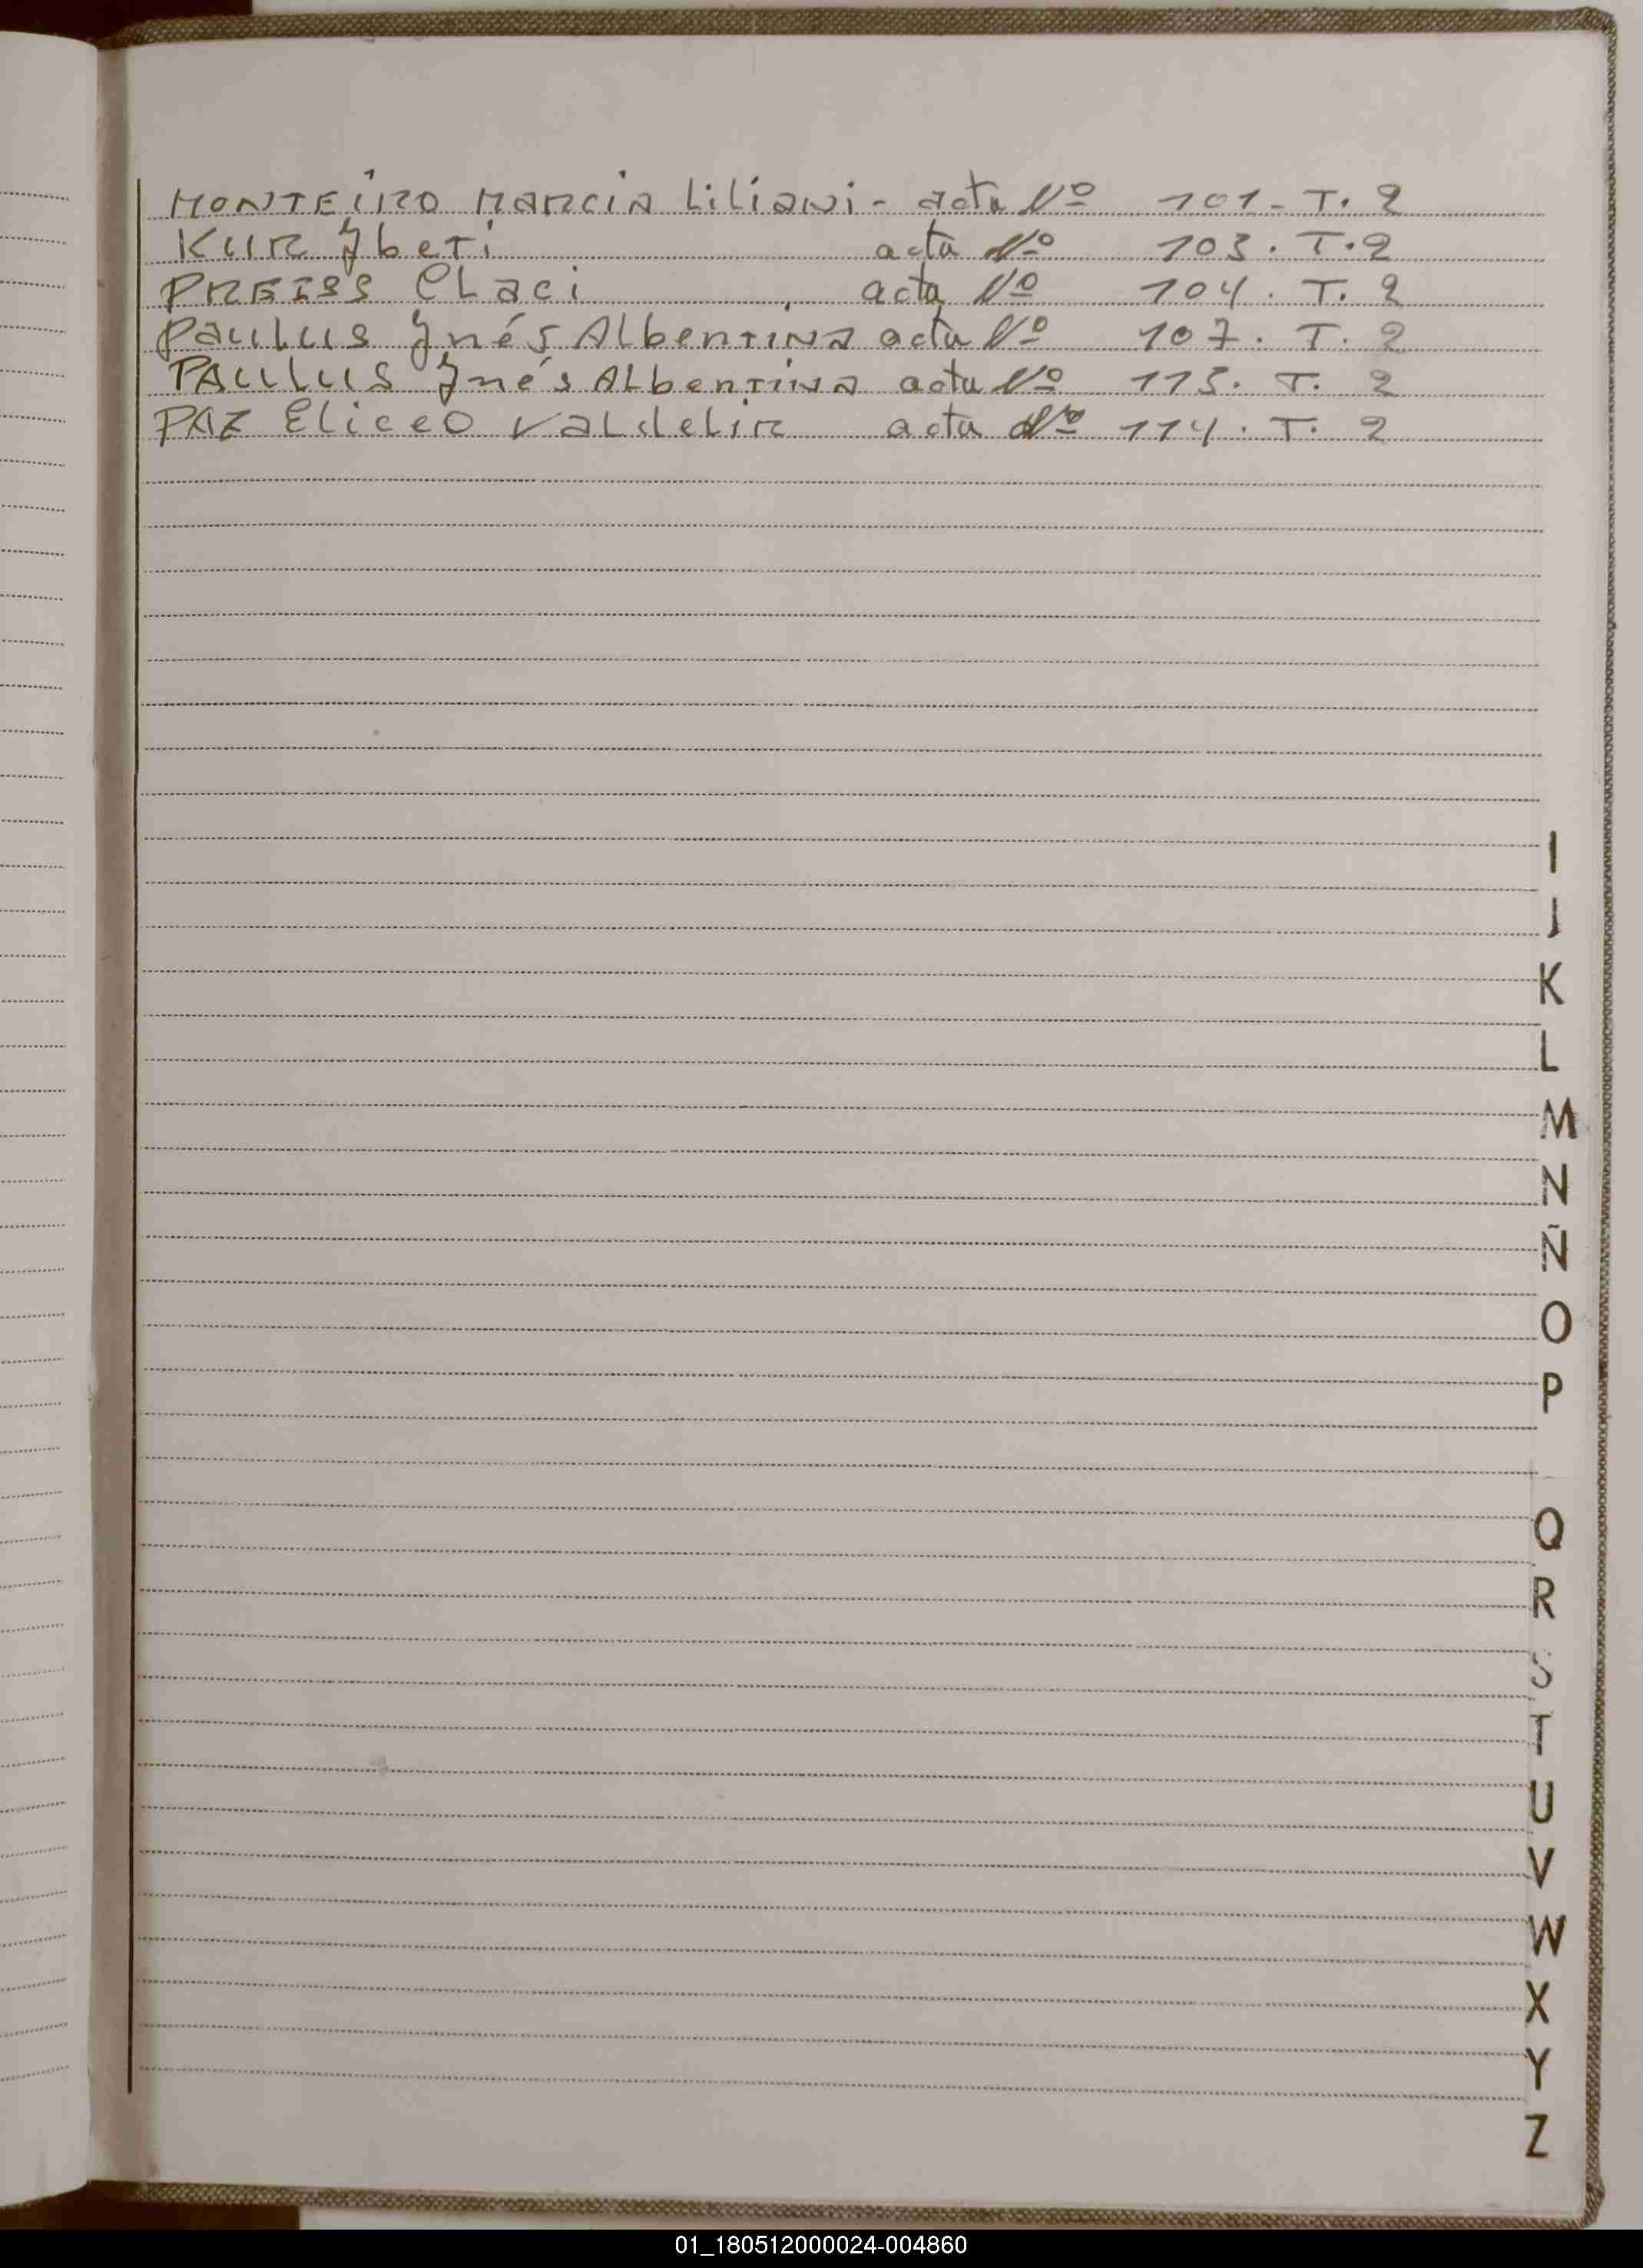 MONTEÍRO MARCIA LiLiANi - acta Nº 101 - T. 2
KUR Yberi acta Nº 103. T. 2
PREISS CLaci acta Nº 104. T. 2
PauLus Ynés ALbertina acta Nº 107. T. 2
PAuLus Ynés ALbertina acta Nº 113. T. 2
PAZ Eliceo VaLdeLir acta Nº 114. T. 2
I
J
K
L
M
N
Ñ
O
P
Q
R
S
T
U
V
W
X
Y
Z
01_180512000024-004860